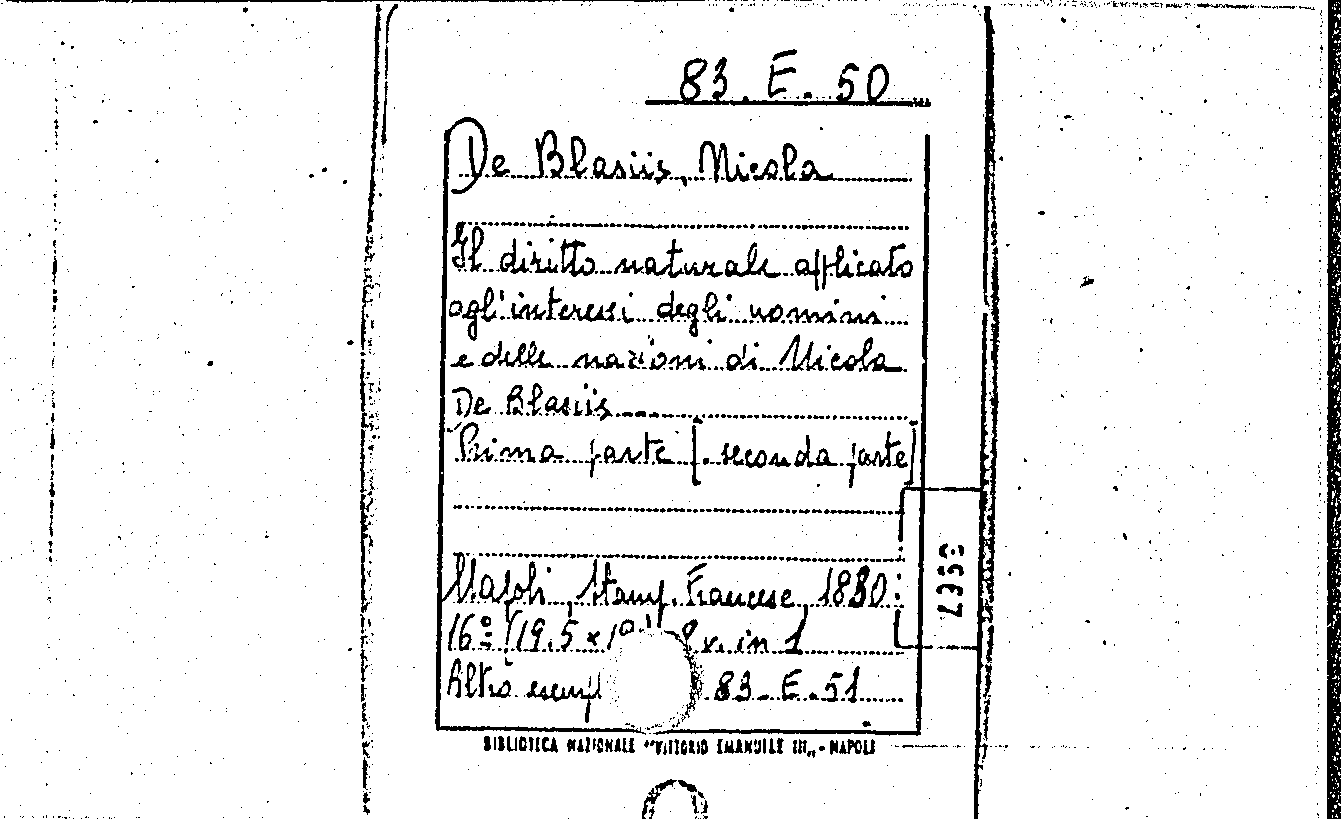 83. E. 50
De Blasiis, Nicola
Il diritto naturale applicato
agl'interessi degli uomini
e delle nazioni di Nicola
De Blasiis....
Prima parte [. seconda parte]
Napoli, Stamp. Francese, 1830:
16º (19,5 × 2 v. in 1
Altro esempl 83-E.51
BIBLIOTECA NAZIONALE "VITTORIO EMANUELE III„ - NAPOLI